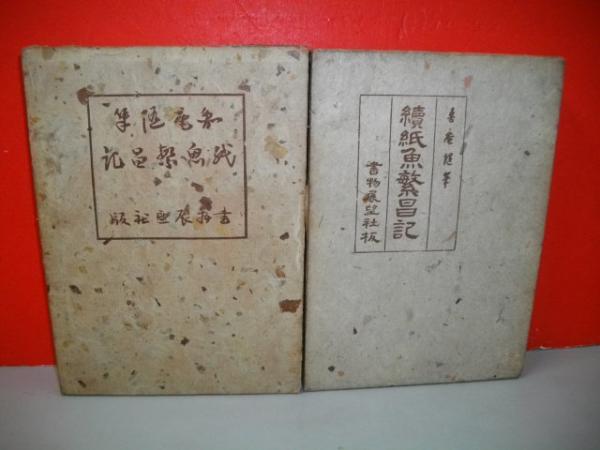 魯庵随筆
紙魚繁昌記
書物展望社版
魯庵随筆
續紙魚繁昌記
書物展望社板